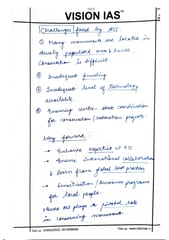 VISION IAS
Challenges faced by ASI
① Many monuments are located in
densely populated area & hence
Conservation is difficult.
② Inadequate funding
③ Inadequate level of technology
available
④ centre-state coordination
for conservation / restoration projects.
Way forward:
→ Enhance expertise at ASI
→ Ensure international collaboration
& learn from global best practices
→ Sensitisation / awareness programme
for local people.
Hence ASI plays a pivotal role
in conserving monuments.